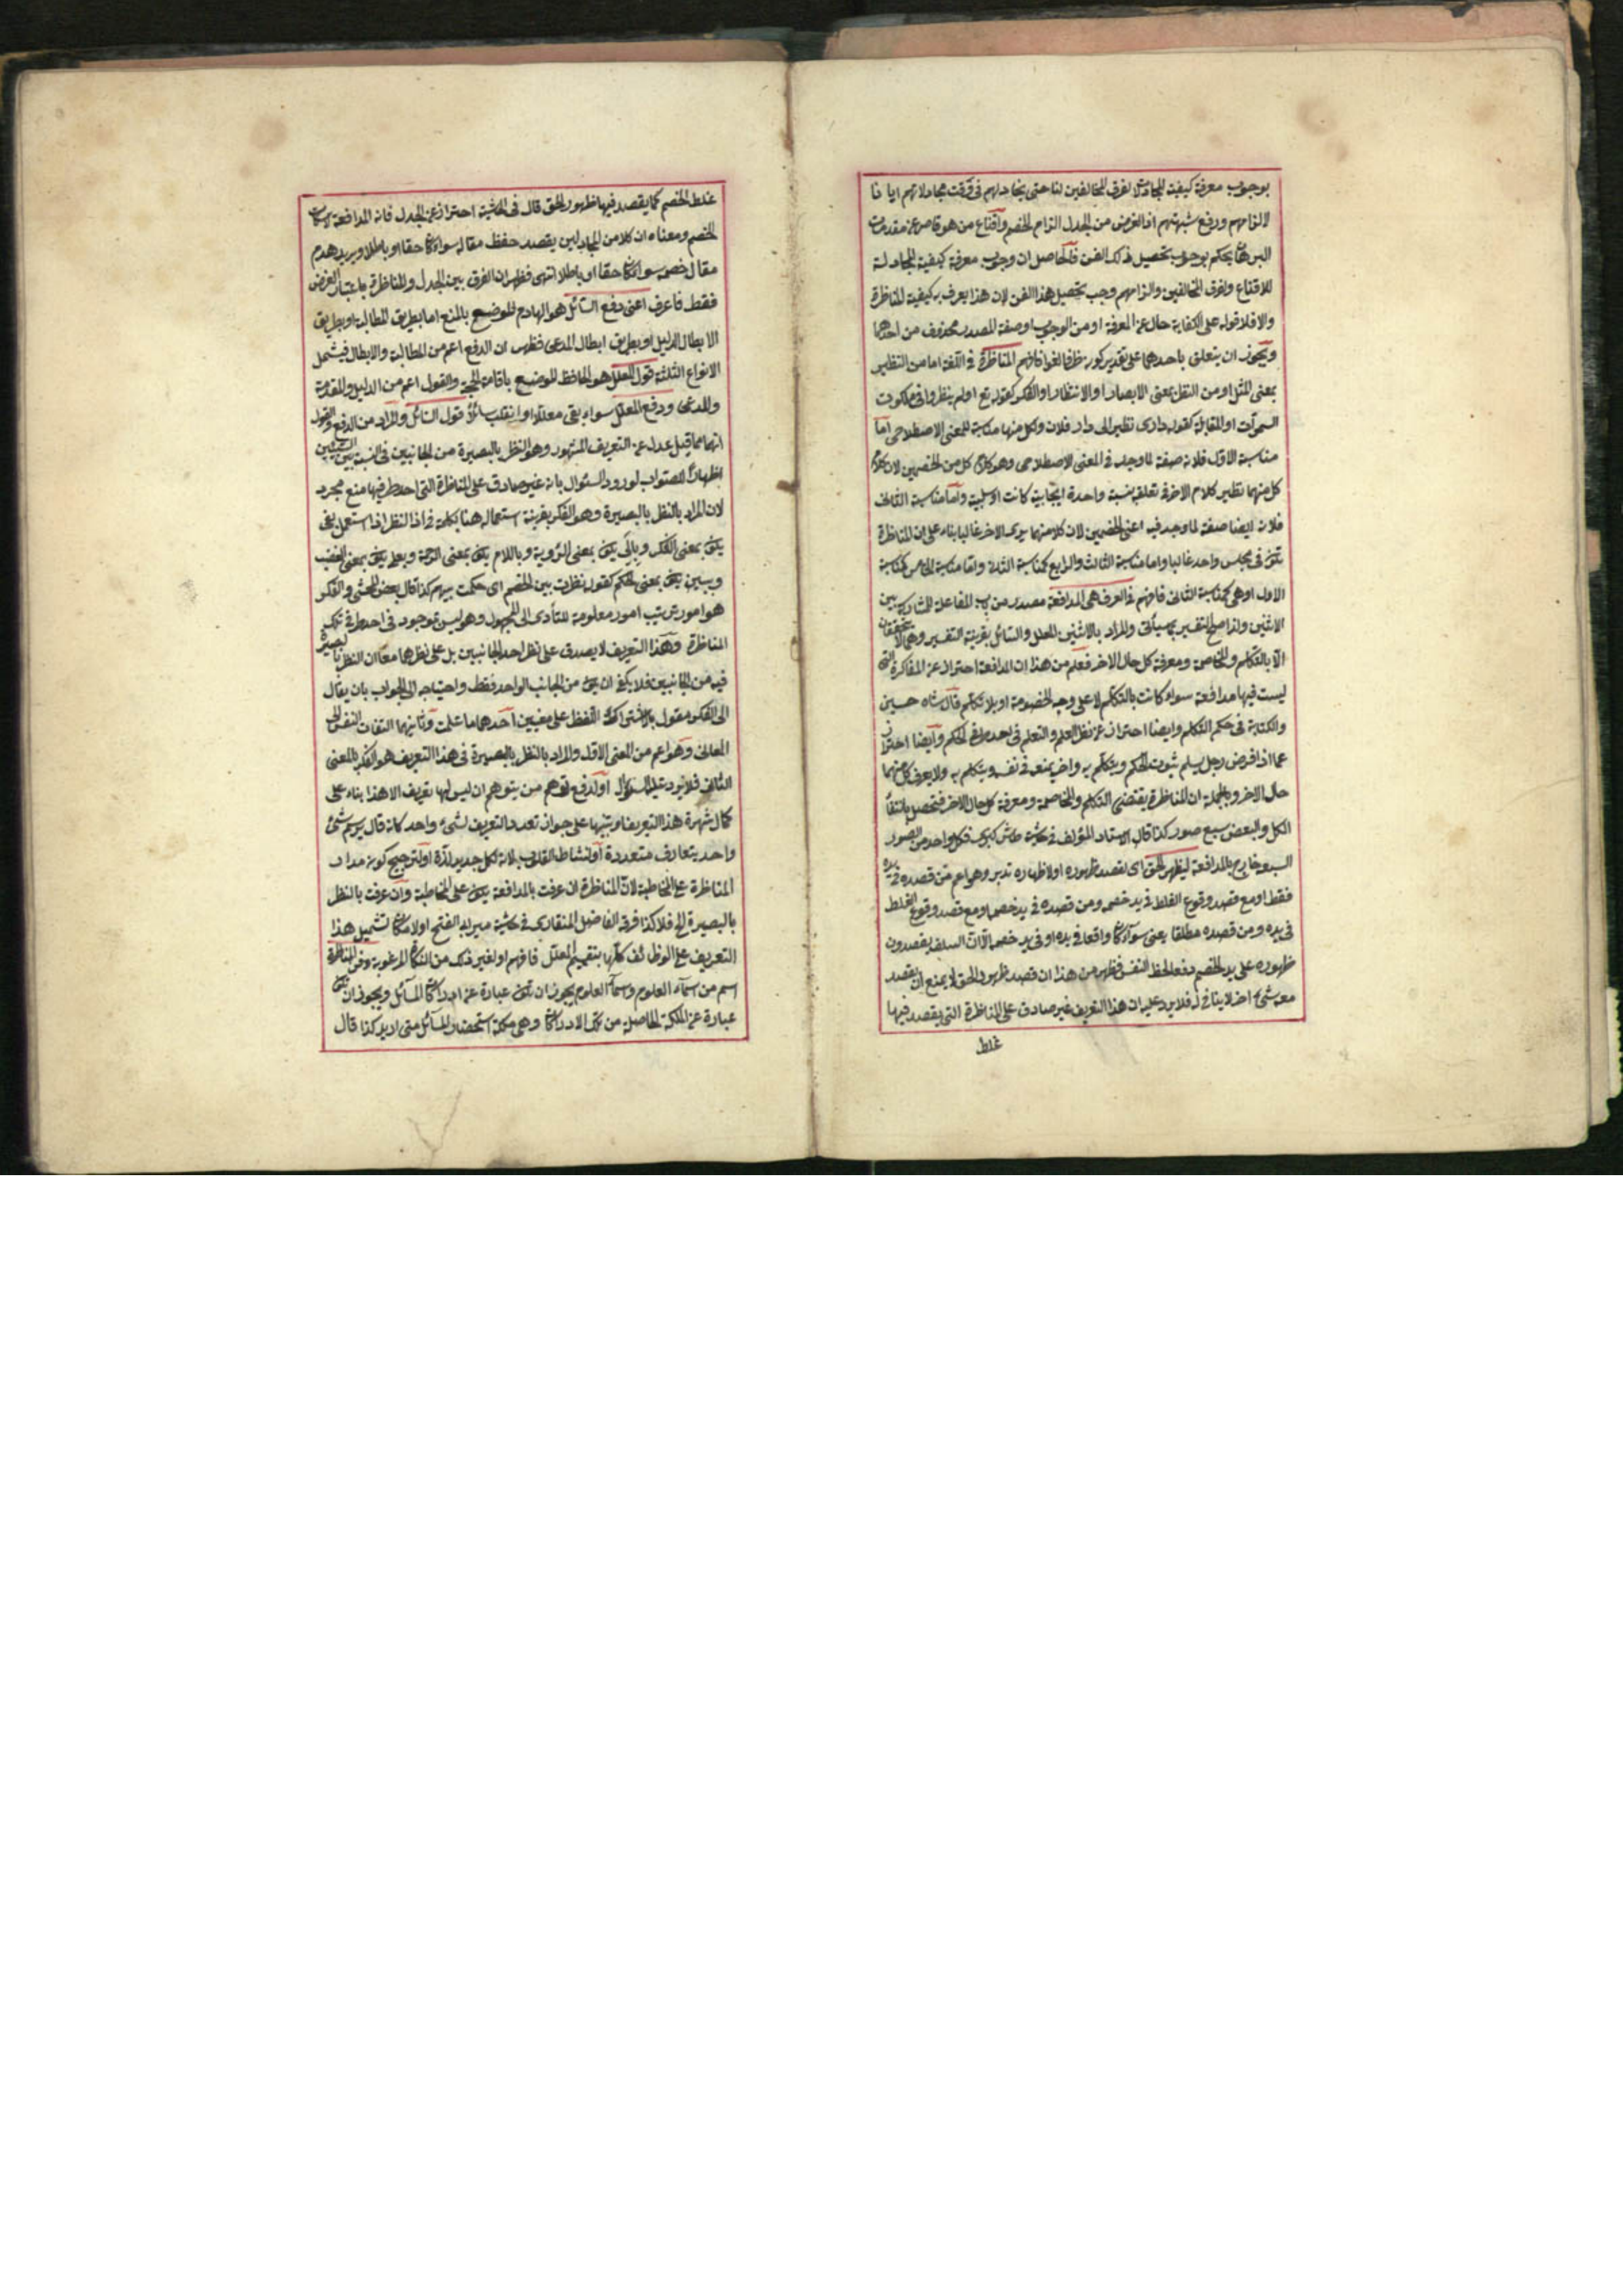 بوجوب معرفة كيفية المجادلة لفرق المخالفين لنا حتى يجادلهم في وقت مجادلاتهم ايانا
لالزامهم ودفع شبهتهم اذ الغرض من الجدل الزام الخصم واقناع من هو قاصر عن مقدمات
البرهان يحكم بوجوب تحصيل ذلك الفن فالحاصل ان وجوب معرفة كيفية المجادلة
للاقناع ولفرق المخالفين والزامهم وجب تحصيل هذا الفن لان هذا يعرف به كيفية المناظرة
والا فلا قوله على الكفاية حال عن المعرفة او من الوجوب او صفة المصدر محذوف من احدهما
ويجوز ان يتعلق باحدهما على تقدير كونه ظرفا لغوا فافهم المناظرة في اللغة اما من النظير
بمعنى المثل او من النظر بمعنى الابصار او الانتظار او الفكر كقوله تع اولم ينظروا في ملكوت
السموات او المقابلة كقوله داري نظير الى دار فلان ولكل منها مناسبة للمعنى الاصطلاحي اما
مناسبة الاول فلانه صفة لما وجد في المعنى الاصطلاحي وهو كلام كل من الخصمين لان كلام
كل منهما نظير كلام الاخر في تعلقه بنسبة واحدة ايجابية كانت او سلبية واما مناسبة الثاني
فلانه ايضا صفة لما وجد فيه اعنى الخصمين لان كلا منهما يرى الاخر غالبا بناء على ان المناظرة
تكون في مجلس واحد غالبا واما مناسبة الثالث والرابع كمناسبة الثاني واما مناسبة الخامس كمناسبة
الاول او هي كمناسبة الثاني فافهم في العرف هي المدافعة مصدر من باب المفاعلة للمشاركة بين
الاثنين ولذا صح التفسير بما سيأتي والمراد بالاثنين المعلل والسائل بقرينة التفسير وهي لا يتحققان
الا بالتكلم والمخاصمة ومعرفة كل حال الاخر فعلم من هذا ان المدافعة احتراز عن المفاكرة التي
ليست فيها مدافعة سواء كانت بالتكلم لا على وجه الخصومة او بلا تكلم قال شاه حسين
والكتابة في حكم التكلم وايضا احتراز عن نظر المعلم والمتعلم في احد طرفي الحكم وايضا احتراز
عما اذا فرض رجل يسلم ثبوت الحكم ويتكلم به واخر يمنعه في نفسه ويتكلم به ولا يعرف كل منهما
حال الاخر وبالجملة ان المناظرة يقتضي التكلم والمخاصمة ومعرفة كل حال الاخر فتحصل بانتفاء
الكل والبعض سبع صور كذا قال الاستاد المؤلف في حاشية طاش كبرى فكل واحد من الصور
السبع خارج بالمدافعة ليظهر الحق اى لقصد ظهوره او لاظهاره تدبر وهو اعم من قصده في يده
فقط او مع قصد وقوع الغلط في يد خصمه ومن قصده في يد خصمه او مع قصد وقوع الغلط
في يده ومن قصده مطلقا يعنى سواء كان واقعا في يده او في يد خصمه الا ان السلف يقصدون
ظهوره على يد الخصم دفعا لحظ النفس فظهر من هذا ان قصد ظهور الحق لا يمنع ان يقصد
معه شئ اخر لا ينافي له فلا يرد عليه ان هذا التعريف غير صادق على المناظرة التي يقصد فيها
غلط
غلط الخصم كما يقصد فيها ظهور الحق قال في الحاشية احتراز عن الجدل فانه المدافعة لاسكات
الخصم ومعناه ان كلا من المجادلين يقصد حفظ مقاله سواء كان حقا او باطلا ويريد هدم
مقال خصمه سواء كان حقا او باطلا انتهى فظهر ان الفرق بين الجدل والمناظرة باعتبار الغرض
فقط فاعرف اعنى دفع السائل هو الهادم للوضع بالمنع اما بطريق المطالبة او بطريق
الابطال الدليل او بطريق ابطال المدعى فظهر ان الدفع اعم من المطالبة والابطال فيشمل
الانواع الثلثة قول المعلل هو الحافظ للوضع باقامة الحجة والقول اعم من الدليل والمقدمة
والمدعى ودفع المعلل سواء بقى معللا او انقلب سائلا قول السائل والمراد من الدفع والقول
انهما مما قبل عدل عن التعريف المشهور وهو النظر بالبصيرة من الجانبين في النسبة بين الشيئين
اظهارا للصواب لورود السئوال بانه غير صادق على المناظرة التي احد طرفيها منع مجرد
لان المراد بالنظر بالبصيرة وهو الفكر بقرينة استعماله هنا بكلمة في اذا النظر اذا استعمل بفى
يكون بمعنى الفكر وبالى يكون بمعنى الرؤية وباللام يكون بمعنى الرحمة وبعلى يكون بمعنى الغضب
وببين يكون بمعنى الحكم كقوله نظرت بين الخصم اى حكمت بينهم كذا قال بعض المحشى والفكر
هو امور ترتيب امور معلومة للتأدى الى المجهول وهو ليس بموجود في احد طرفي تلك
المناظرة وهذا التعريف لا يصدق على نظر احد الجانبين بل على نظرهما معا ان النظر بالبصيرة
فيه من الجانبين فلا يكفى ان يكون من الجانب الواحد فقط واحتياجه الى الجواب بان يقال
الى الفكر مقول بالاشتراك اللفظ على معنيين احدهما ما علمت وثانيهما التفات النفس الى
المعانى وهو اعم من المعنى الاول والمراد بالنظر بالبصيرة في هذا التعريف هو الفكر بالمعنى
الثانى فلا يرد عليه السؤال او لدفع توهم من يتوهم ان ليس لها تعريف الا هذا بناء على
كمال شهرة هذا التعريف او تنبيها على جواز تعدد التعريف لشئ واحد كانه قال يرسم شئ
واحد بتعاريف متعددة او لنشاط القلب لانه لكل جديد لذة او لترجيح كونه مدار
المناظرة على المخاطبة لان المناظرة ان عرفت بالمدافعة يكون على المخاطبة وان عرفت بالنظر
بالبصيرة الخ فلا كذا فرقه الفاضل المنقارى في حاشية ميرابو الفتح او لامكان تشميل هذا
التعريف على الوظائف كلها بتعميم المعلل فافهم او لغير ذلك من النكات المرغوبة وفن المناظرة
اسم من اسماء العلوم واسماء العلوم يجوز ان تكون عبارة عن ادراكات المسائل ويجوز ان تكون
عبارة عن الملكة الحاصلة من تلك الادراكات وهى ملكة استحضار المسائل متى اريد كذا قال